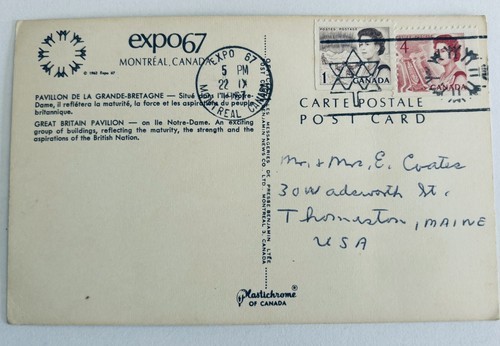 expo67
MONTRÉAL, CANADA
© 1963 Expo 67
PAVILLON DE LA GRANDE-BRETAGNE — Situé dans l'île Notre-
Dame, il reflétera la maturité, la force et les aspirations du peuple
britannique.
GREAT BRITAIN PAVILION — on Ile Notre-Dame. An exciting
group of buildings, reflecting the maturity, the strength and the
aspirations of the British Nation.
EXPO 67
5 PM
22 IX
67
MONTREAL CANADA
POSTES POSTAGE
1
4
CARTE POSTALE
POST CARD
MESSAGERIES DE PRESSE BENJAMIN LTÉE
BENJAMIN NEWS CO., LTD. MONTREAL 3, CANADA
Mr. & Mrs. E. Coates
30 Wadsworth St.
Thomaston, MAINE
USA
Plastichrome
OF CANADA